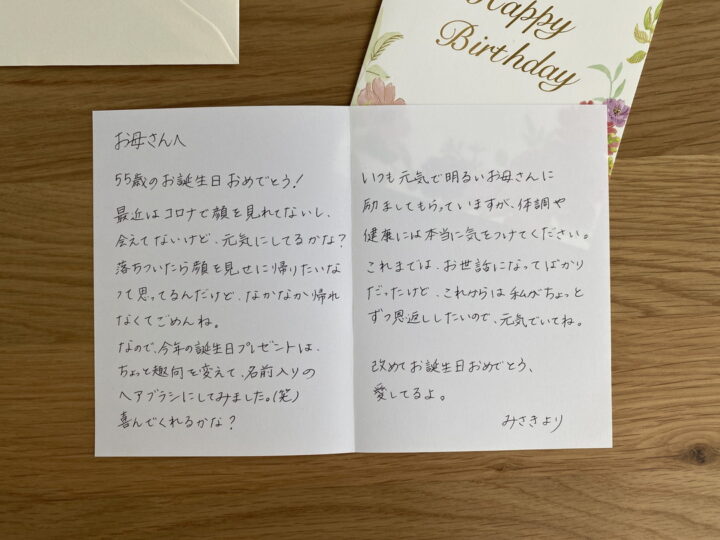 Happy
Birthday
お母さんへ
55歳のお誕生日おめでとう!
最近はコロナで顔を見れてないし、
会えてないけど、元気にしてるかな?
落ちついたら顔を見せに帰りたいな
って思ってるんだけど、なかなか帰れ
なくてごめんね。
なので、今年の誕生日プレゼントは、
ちょっと趣向を変えて、名前入りの
ヘアブラシにしてみました。(笑)
喜んでくれるかな?
いつも元気で明るいお母さんに
励ましてもらっていますが、体調や
健康には本当に気をつけてください。
これまでは、お世話になってばかり
だったけど、これからは私がちょっと
ずつ恩返ししたいので、元気でいてね。
改めてお誕生日おめでとう、
愛してるよ。
みさきより